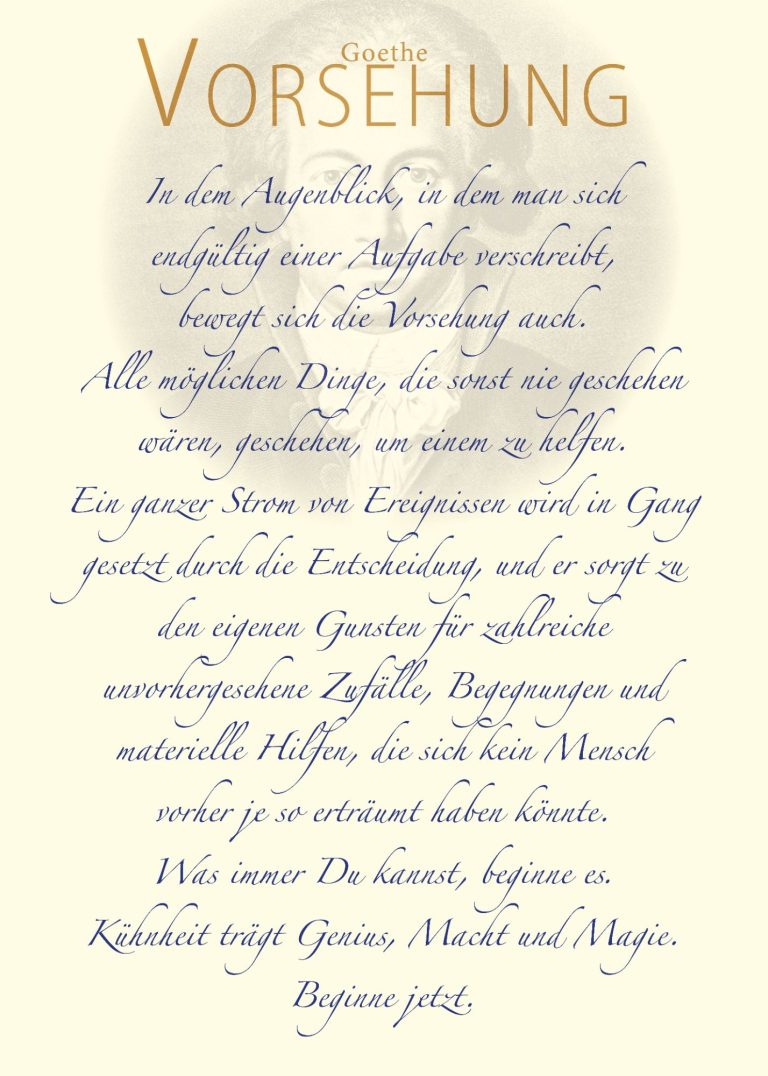 Goethe
VORSEHUNG
In dem Augenblick, in dem man sich
endgültig einer Aufgabe verschreibt,
bewegt sich die Vorsehung auch.
Alle möglichen Dinge, die sonst nie geschehen
wären, geschehen, um einem zu helfen.
Ein ganzer Strom von Ereignissen wird in Gang
gesetzt durch die Entscheidung, und er sorgt zu
den eigenen Gunsten für zahlreiche
unvorhergesehene Zufälle, Begegnungen und
materielle Hilfen, die sich kein Mensch
vorher je so erträumt haben könnte.
Was immer Du kannst, beginne es.
Kühnheit trägt Genius, Macht und Magie.
Beginne jetzt.